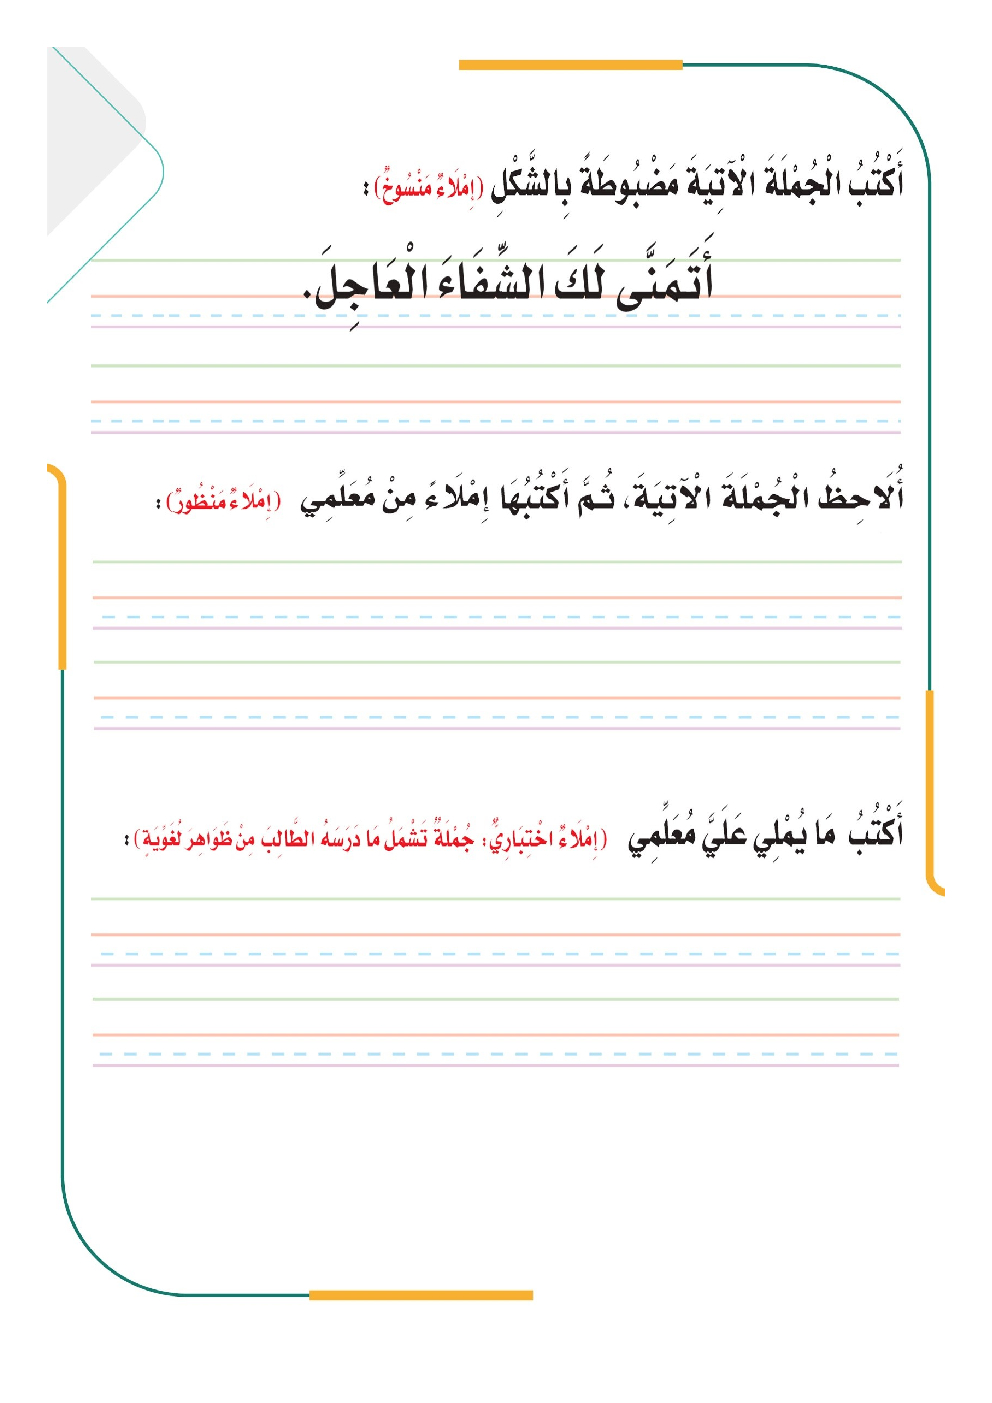 أَكْتُبُ الْجُمْلَةَ الْآتِيَةَ مَضْبُوطَةً بِالشَّكْلِ (إِمْلَاءٌ مَنْسُوخٌ) :
أَتَمَنَّى لَكَ الشِّفَاءَ الْعَاجِلَ.
أُلَاحِظُ الْجُمْلَةَ الْآتِيَةَ، ثُمَّ أَكْتُبُهَا إِمْلَاءً مِنْ مُعَلِّمِي (إِمْلَاءٌ مَنْظُورٌ) :
أَكْتُبُ مَا يُمْلِي عَلَيَّ مُعَلِّمِي (إِمْلَاءٌ اخْتِبَارِيٌّ: جُمْلَةٌ تَشْمَلُ مَا دَرَسَهُ الطَّالِبَ مِنْ ظَوَاهِرَ لُغَوْيَةٍ) :